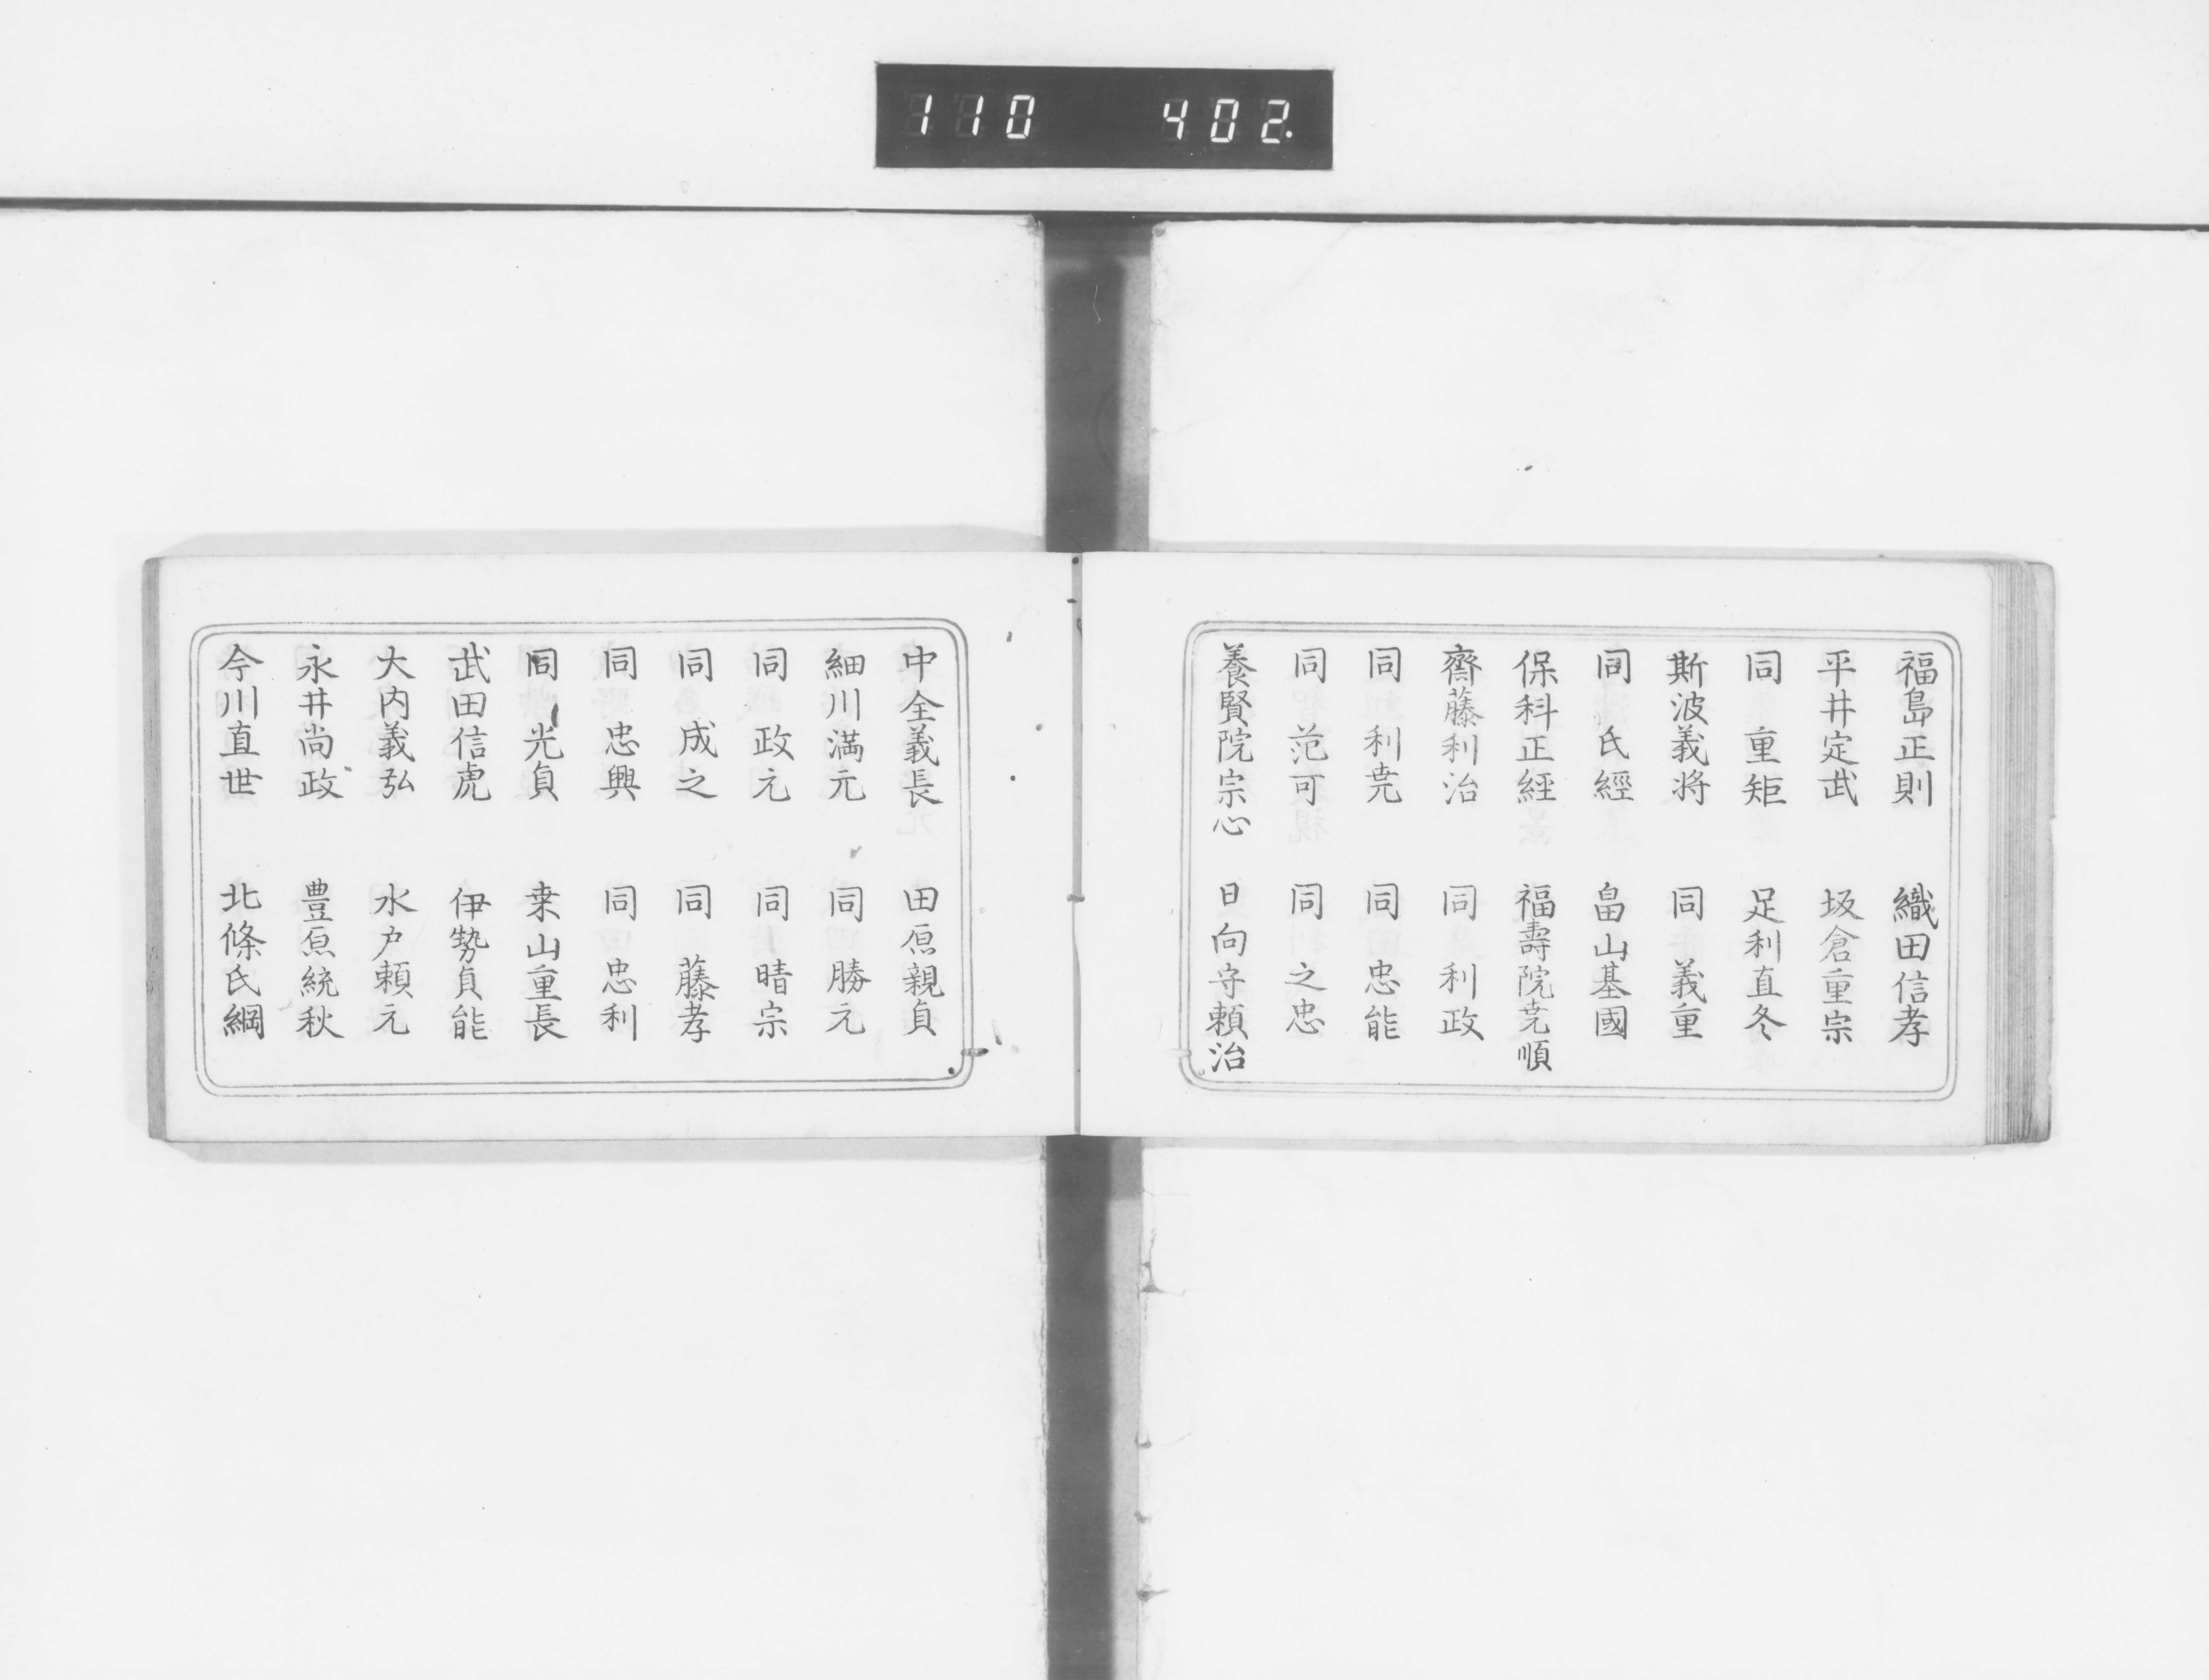 110 402.
福島正則 織田信孝
平井定武 坂倉重宗
同 重矩 足利直冬
斯波義将 同 義重
同 氏經 畠山基國
保科正經 福壽院尭順
齋藤利治 同 利政
同 利尭 同 忠能
同 范可 同 之忠
養賢院宗心 日向守頼治
中全義長 田原親貞
細川満元 同 勝元
同 政元 同 晴宗
同 成之 同 藤孝
同 忠興 同 忠利
同 光貞 桒山重長
武田信虎 伊勢貞能
大内義弘 水戸頼元
永井尚政 豊原統秋
今川直世 北條氏綱